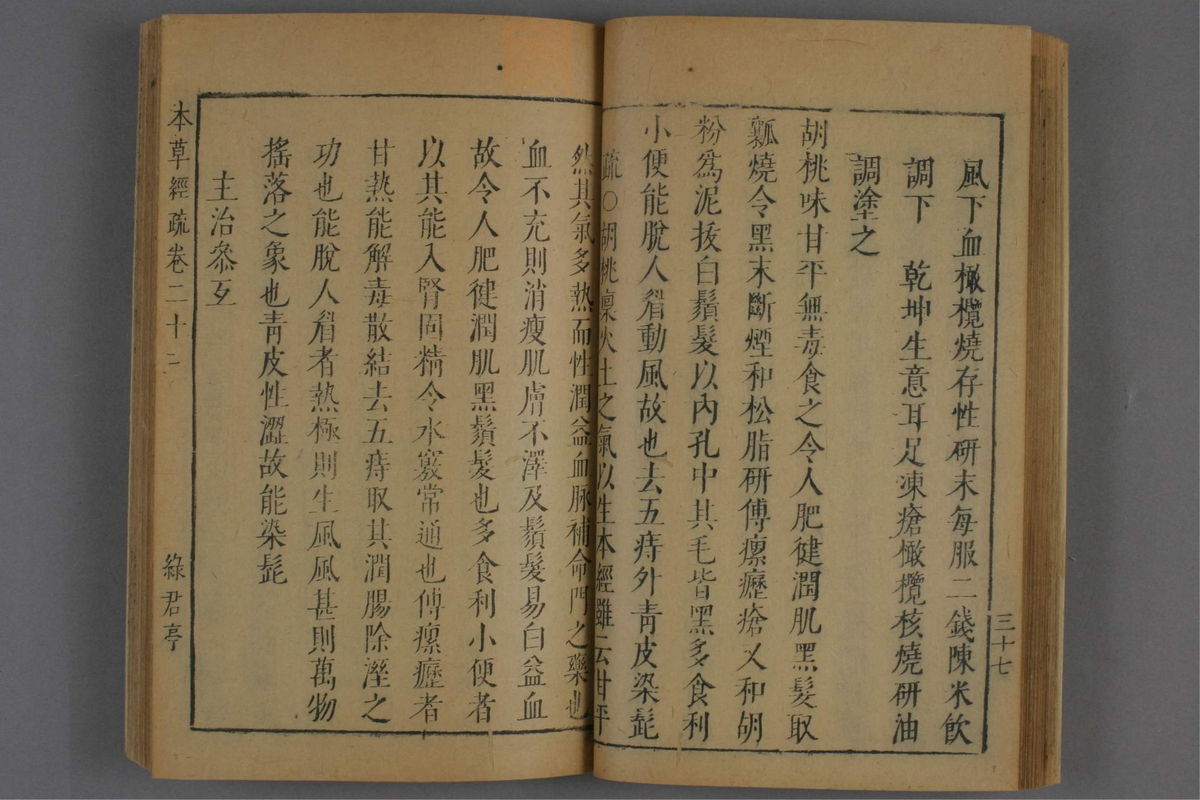 三十七
風下血橄欖燒存性研末每服二錢陳米飲
調下　乾坤生意耳足凍瘡橄欖核燒研油
調塗之
胡桃味甘平無毒食之令人肥健潤肌黑髮取
瓤燒令黑末斷煙和松脂研傅瘰癧瘡又和胡
粉爲泥拔白鬚髮以內孔中其毛皆黑多食利
小便能脫人眉動風故也去五痔外靑皮染髭
疏○胡桃稟火土之氣以生本經雖云甘平
然其氣多熱而性潤益血脉補命門之藥也
血不充則消瘦肌膚不澤及鬚髮易白益血
故令人肥健潤肌黑鬚髮也多食利小便者
以其能入腎固精令水竅常通也傅瘰癧者
甘熱能解毒散結去五痔取其潤腸除溼之
功也能脫人眉者熱極則生風風甚則萬物
搖落之象也靑皮性澀故能染髭
主治叅互
本草經疏卷二十
綠君亭